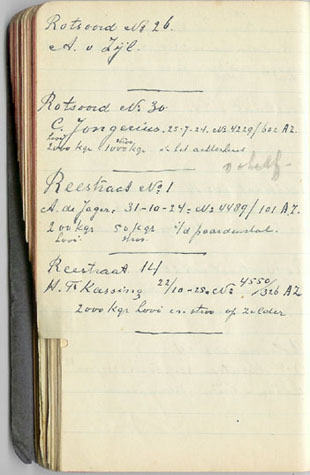 Rotsoord No 26.
A. v Zijl.
Rotsoord No 30
C. Jongerius. 25-7-24. No 4229/602 A.Z.
hooi stroo
2000 kgr 1000 kgr in het achterhuis
Reestraat No 1
A. de Jager, 31-10-24: No 4489/101 A.Z.
200 kgr 50 kgr i/d paardenstal.
hooi stroo
Reestraat 14
H. Th Kassing 22/10-25. No 4550/326 AZ
2000 kgr hooi en stroo op zolder